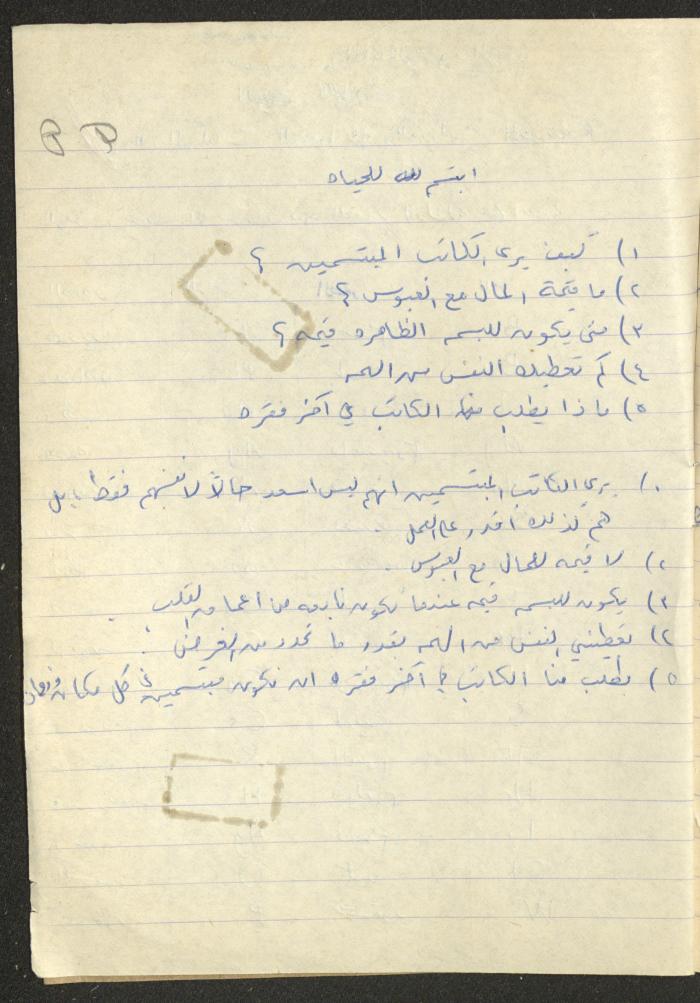 ابتسم للحياه
١) كيف يرى الكاتب المبتسمين ؟
٢) ما قيمة المال مع العبوس ؟
٣) متى يكون للبسمه الظاهره قيمه ؟
٤) كم تعطيك النفس من الهمه
٥) ماذا يطلب منا الكاتب في آخر فقره
١) يرى الكاتب المبتسمين انهم ليس اسعد حالاً لانفسهم فقط بل
هم لذلك اقدر على العمل .
٢) لا قيمه للمال مع العبوس .
٣) يكون للبسمه قيمه عندما تكون نابعه من اعماق القلب .
تعطيني النفس من الهمه بقدر ما تحدد من الغرض .
٥) يطلب منا الكاتب في آخر فقره ان نكون مبتسمين في كل مكان وزمان